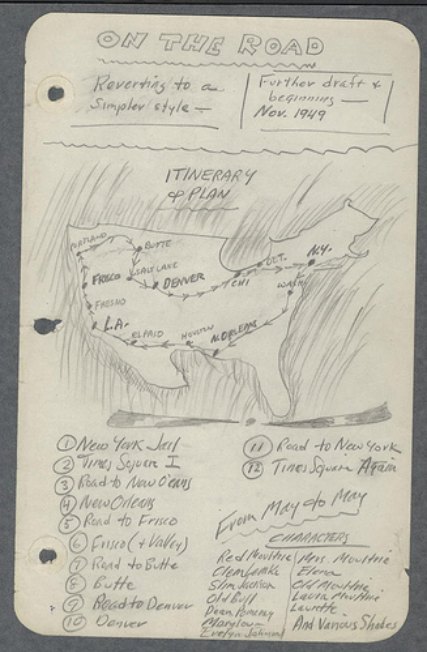 ON THE ROAD
Reverting to a
Simpler style —
Further draft &
beginning —
Nov. 1949
ITINERARY
& PLAN
PORTLAND
BUTTE
FRISCO
SALT LANE
DENVER
CHI
DET.
N.Y.
WASH.
FRESNO
L.A.
EL PASO
HOUSTON
N. ORLEANS
① New York Jail
② Times Square I
③ Road to New O'eans
④ New Orleans
⑤ Road to Frisco
⑥ Frisco (+ Valley)
⑦ Road to Butte
⑧ Butte
⑨ Road to Denver
⑩ Denver
⑪ Road to New York
⑫ Times Square Again
From May to May
CHARACTERS
Red Moultrie
Slim Jackson
Old Bull
Dean Pomeray
Marylou
Mrs. Moultrie
Elena
Old Moultrie
Laura Moultrie
Laurette
And Various Shades